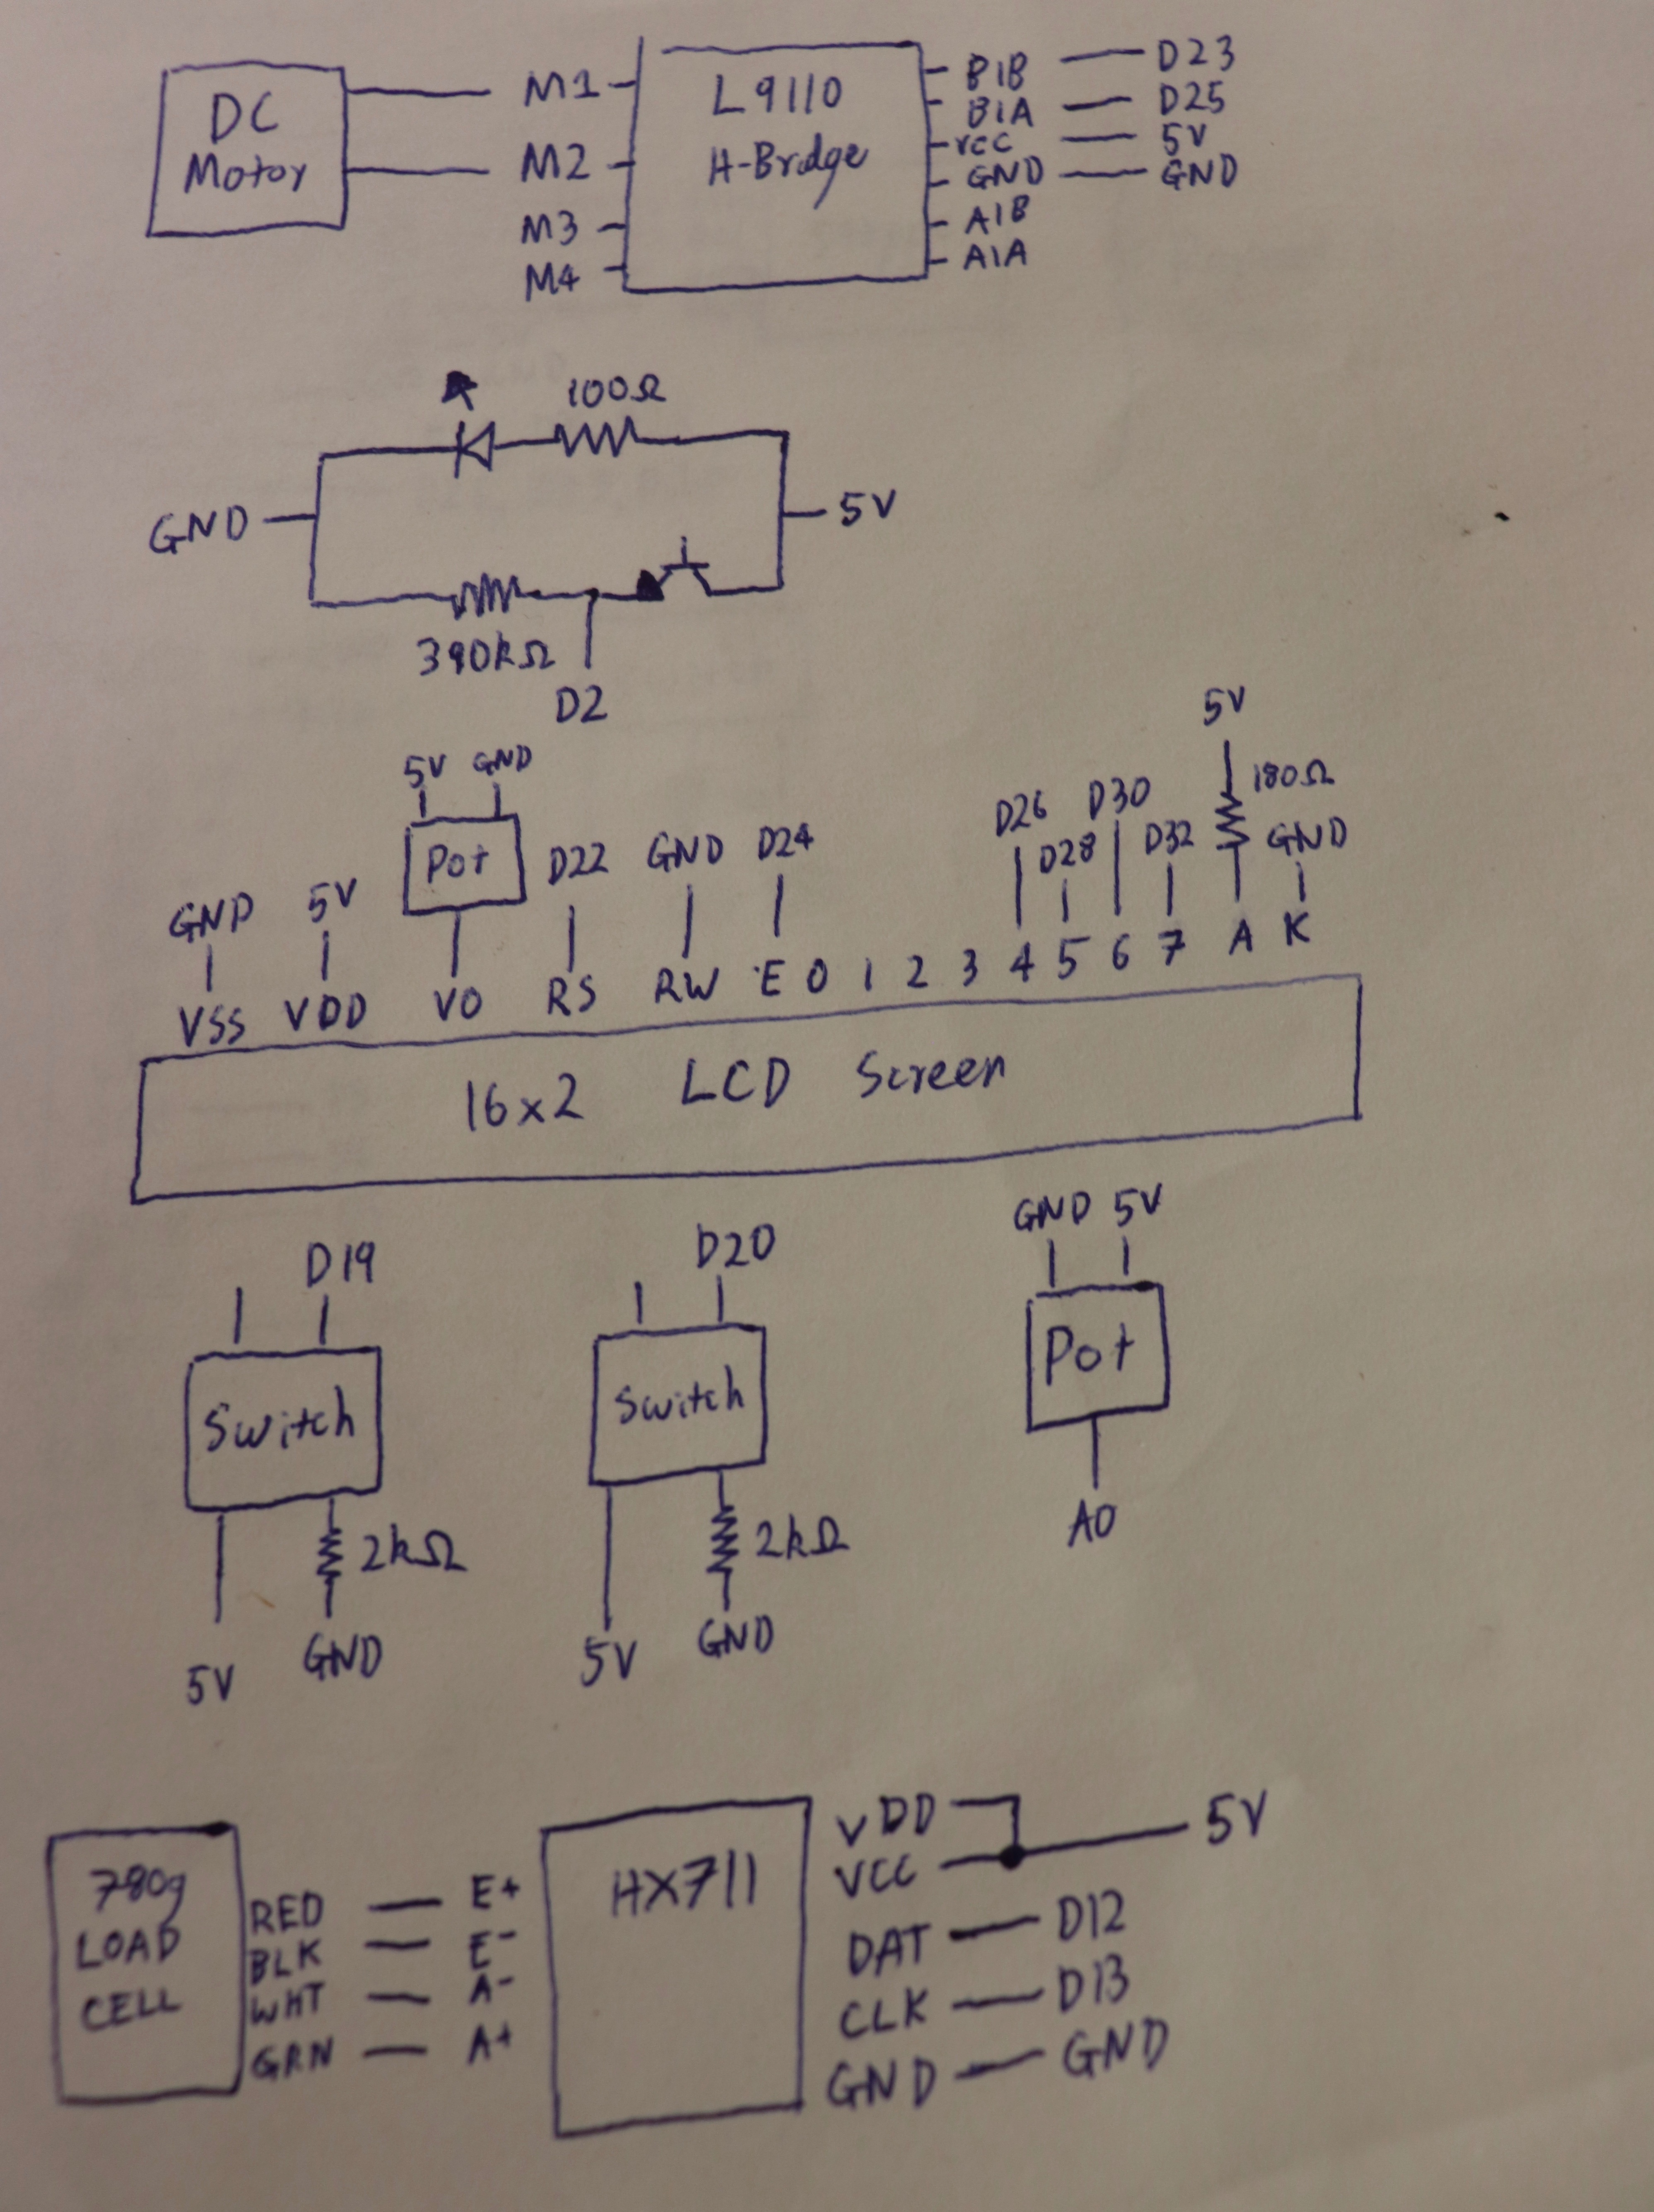 DC Motor
M1
M2
M3
M4
L9110
H-Bridge
B1B D23
B1A D25
VCC 5V
GND GND
A1B
A1A
100Ω
GND
5V
390kΩ
D2
5V GND
Pot
GND
5V
D22
GND
D24
D26
D28
D30
D32
5V
180Ω
GND
VSS VDD VO RS RW E 0 1 2 3 4 5 6 7 A K
16x2 LCD Screen
D19
Switch
2kΩ
5V GND
D20
Switch
2kΩ
5V GND
GND 5V
Pot
A0
780g
LOAD
CELL
RED E+
BLK E-
WHT A-
GRN A+
HX711
VDD
VCC 5V
DAT D12
CLK D13
GND GND